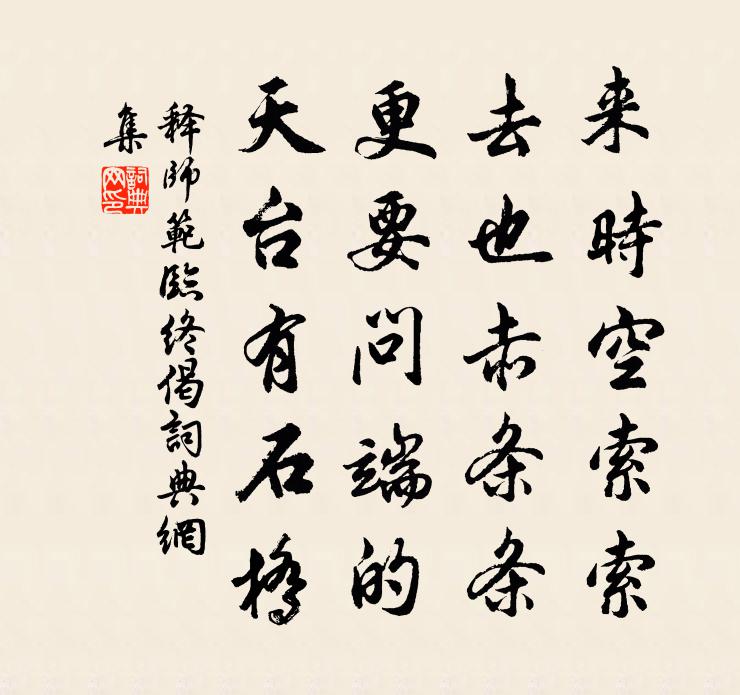 来時空索索
去也赤条条
更要問端的
天台有石橋
释師範臨终偈詞典網
集
詞典
网印